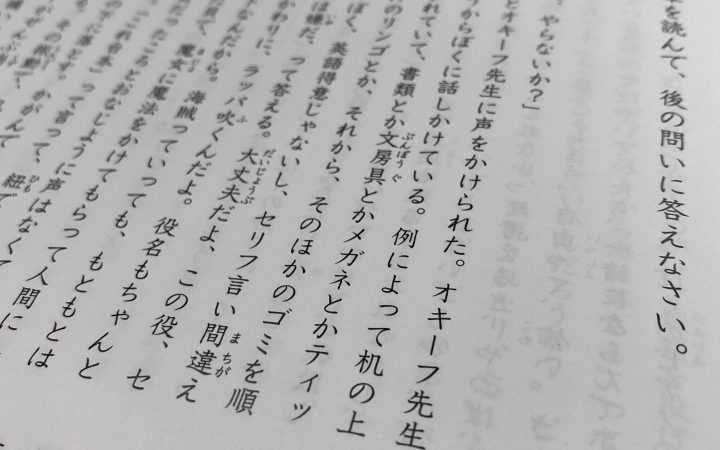 を読んで、後の問いに答えなさい。
やらないか？」
とオキーフ先生に声をかけられた。オキーフ先生
うからぼくに話しかけている。例によって机の上
れていて、書類とか文房具とかメガネとかティッ
のリンゴとか、それから、そのほかのゴミを順
ぼく、英語得意じゃないし、セリフ言い間違え
は嫌だ、って答える。大丈夫だよ、この役、セ
かわりに、ラッパ吹くんだよ。役名もちゃんと
なんだから。海賊っていっても、もともとは
魔女に魔法をかけてもらって人間に
だったころとおなじように声はなくて
「これ台本」って言って、紐で
落とす。かがんで
振動で、